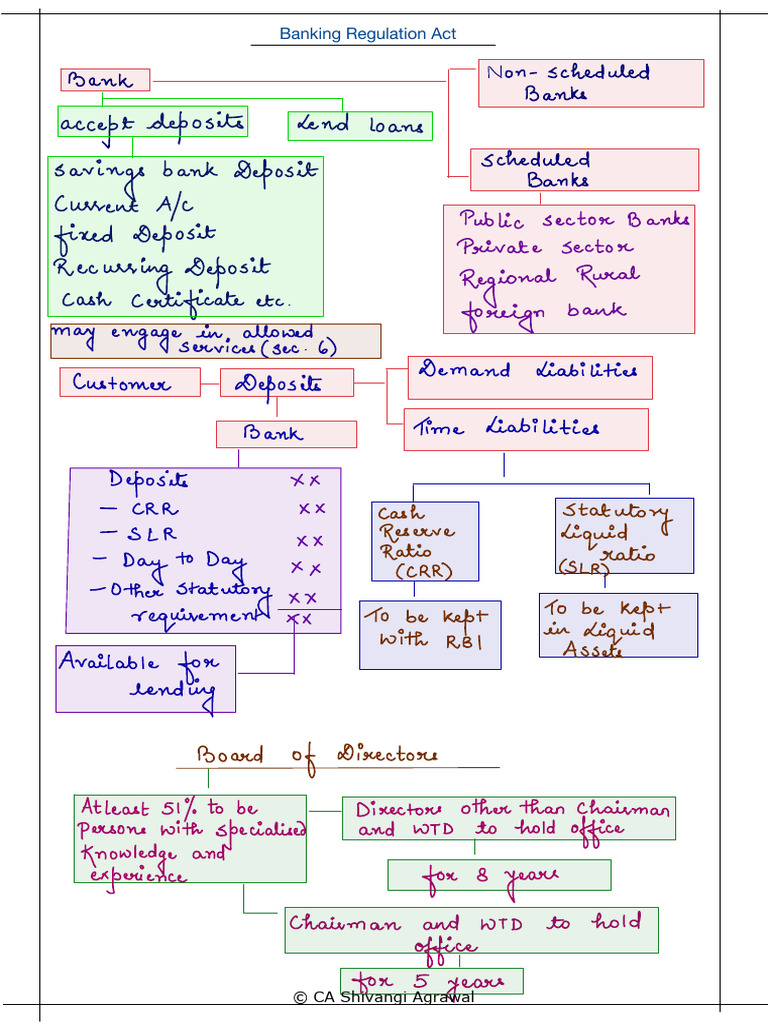 Banking Regulation Act
Bank
Non-scheduled
Banks
accept deposits
Lend loans
Scheduled
Banks
Savings bank Deposit
Current A/c
fixed Deposit
Recurring Deposit
Cash Certificate etc.
Public sector Banks
Private sector
Regional Rural
foreign bank
may engage in allowed
services (sec. 6)
Customer
Deposits
Demand Liabilities
Bank
Time Liabilities
Deposits xx
- CRR xx
- SLR xx
- Day to Day xx
- Other Statutory xx
requirement xx
Cash
Reserve
Ratio
(CRR)
Statutory
Liquid
ratio
(SLR)
To be kept
with RBI
To be kept
in Liquid
Assets
Available for
lending
Board of Directors
Atleast 51% to be
Persons with specialised
Knowledge and
experience
Directors other than Chairman
and WTD to hold office
for 8 years
Chairman and WTD to hold
office
for 5 years
© CA Shivangi Agrawal